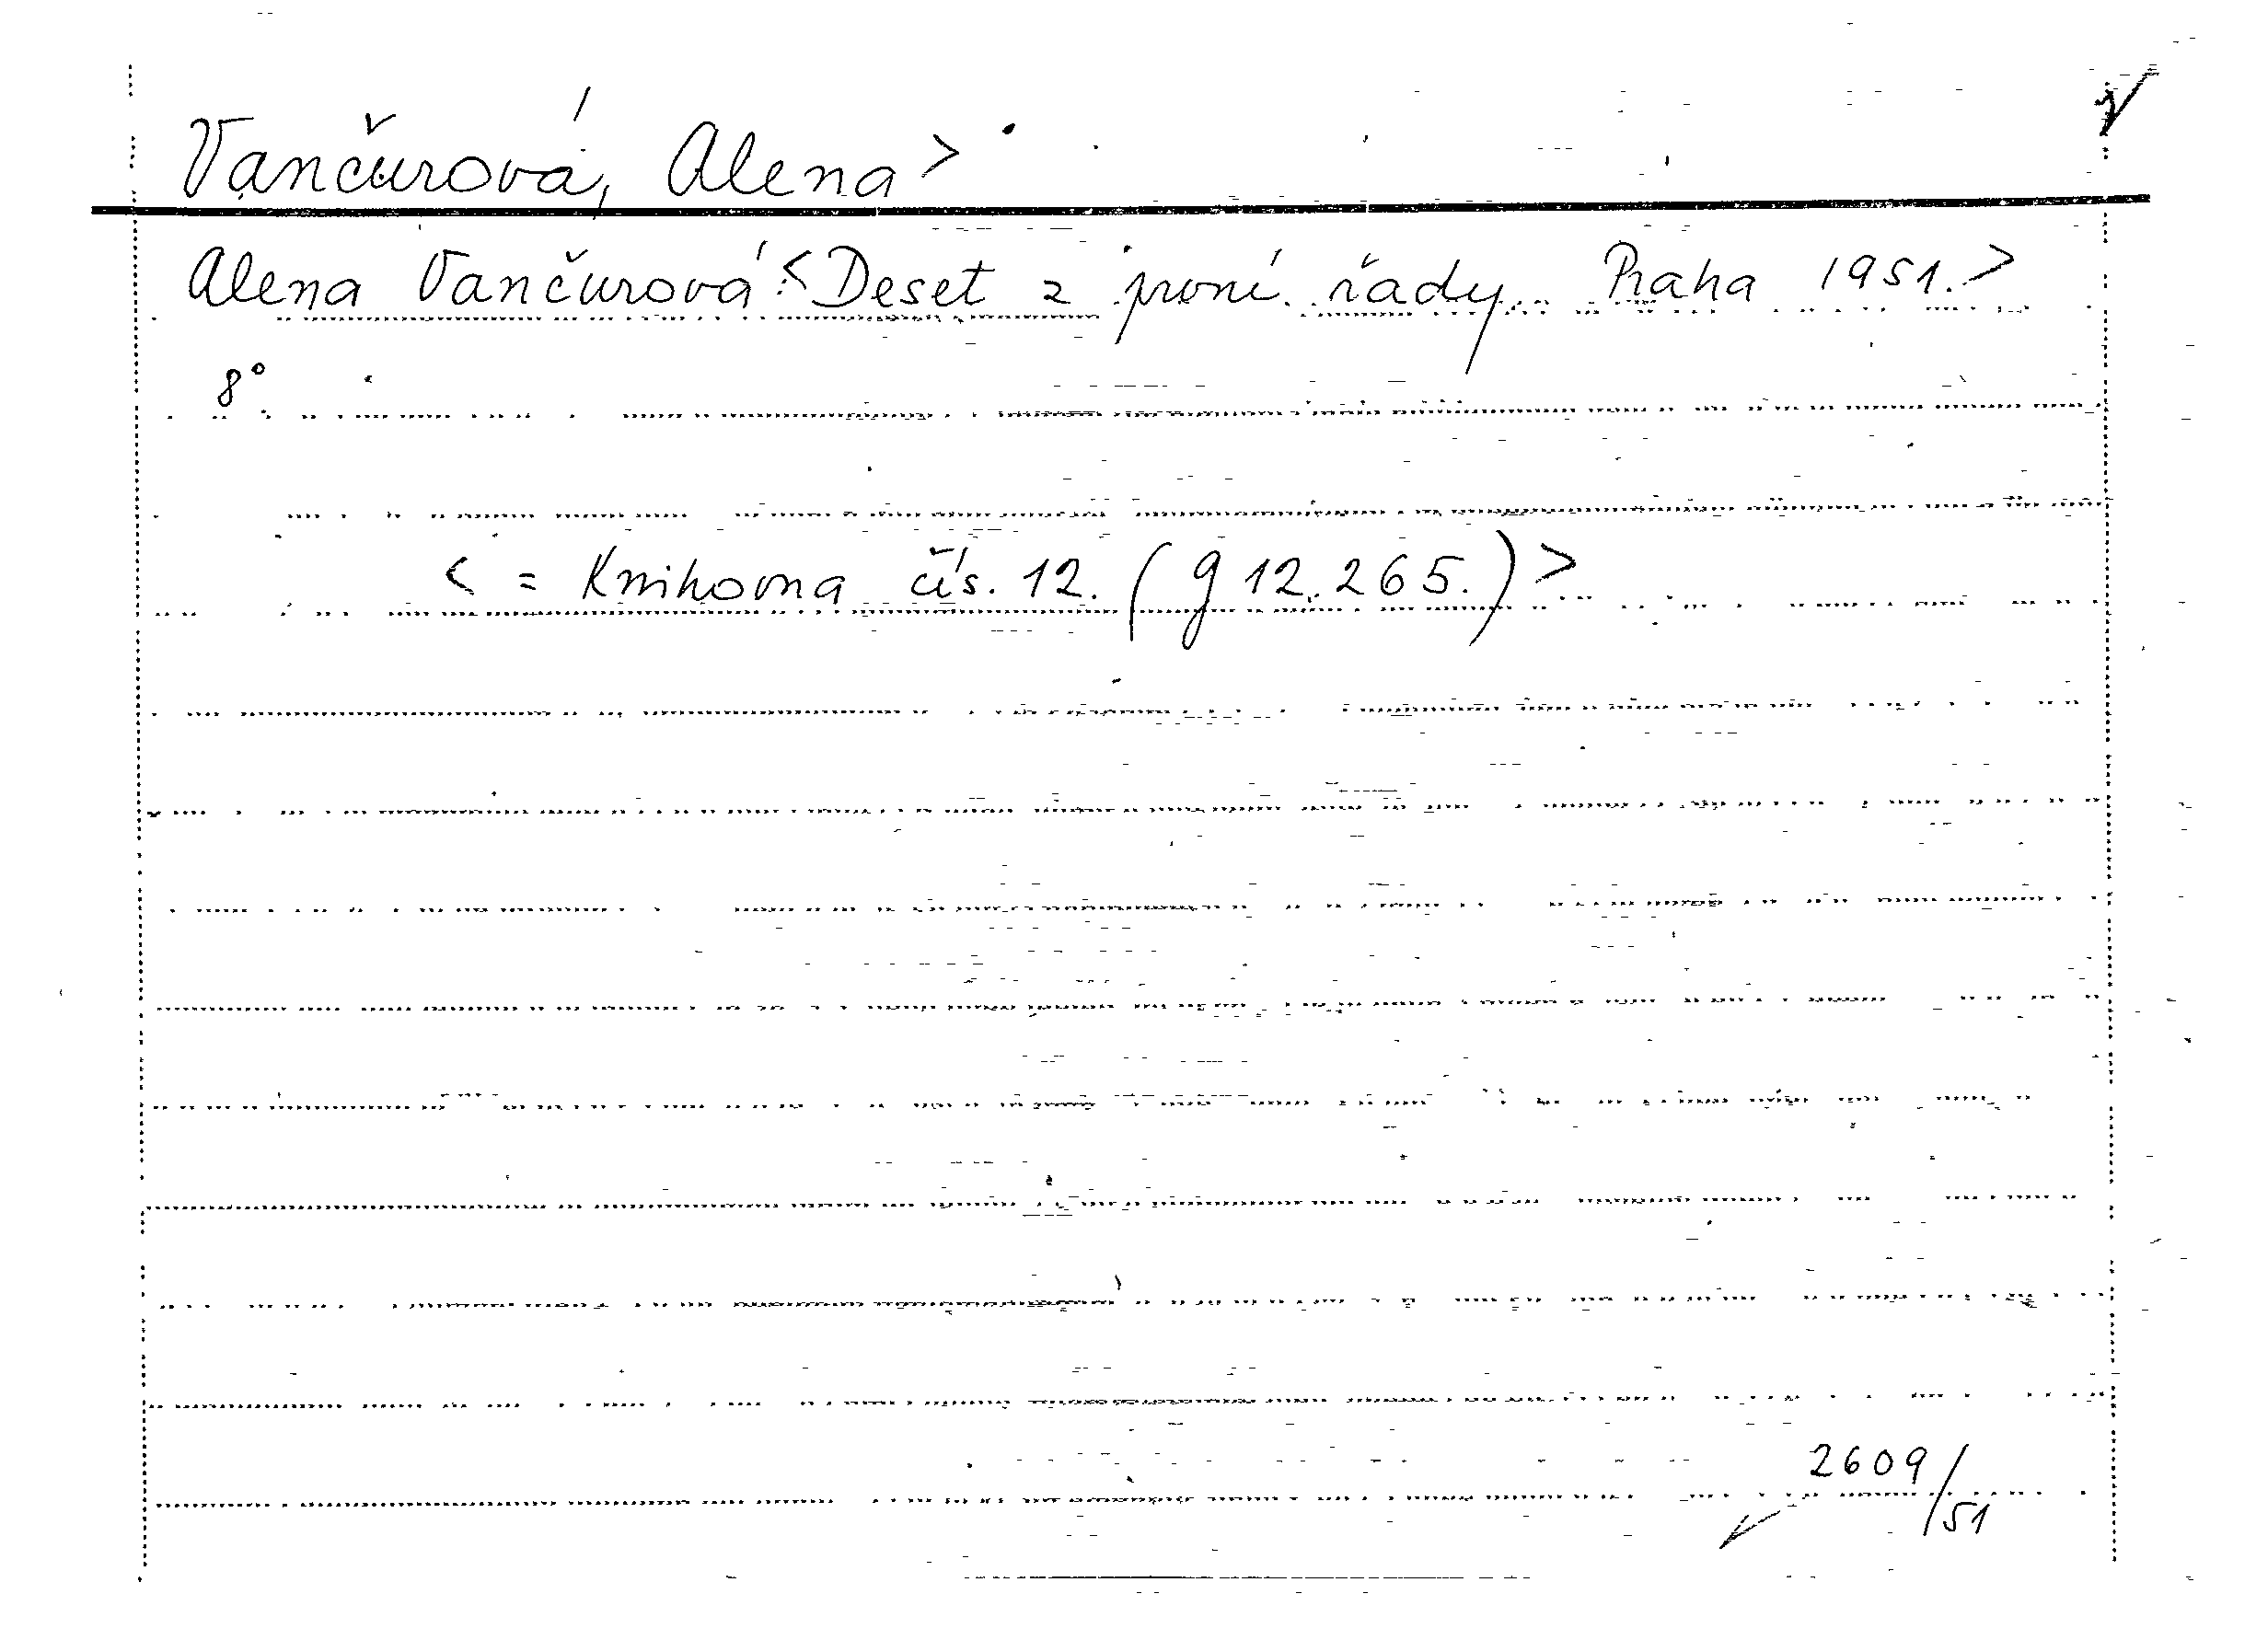 Vančurová, Alena >
Alena Vančurová: < Deset z první řady. Praha 1951. >
8°
< = Knihovna čís. 12. (g 12.265.) >
2609/51